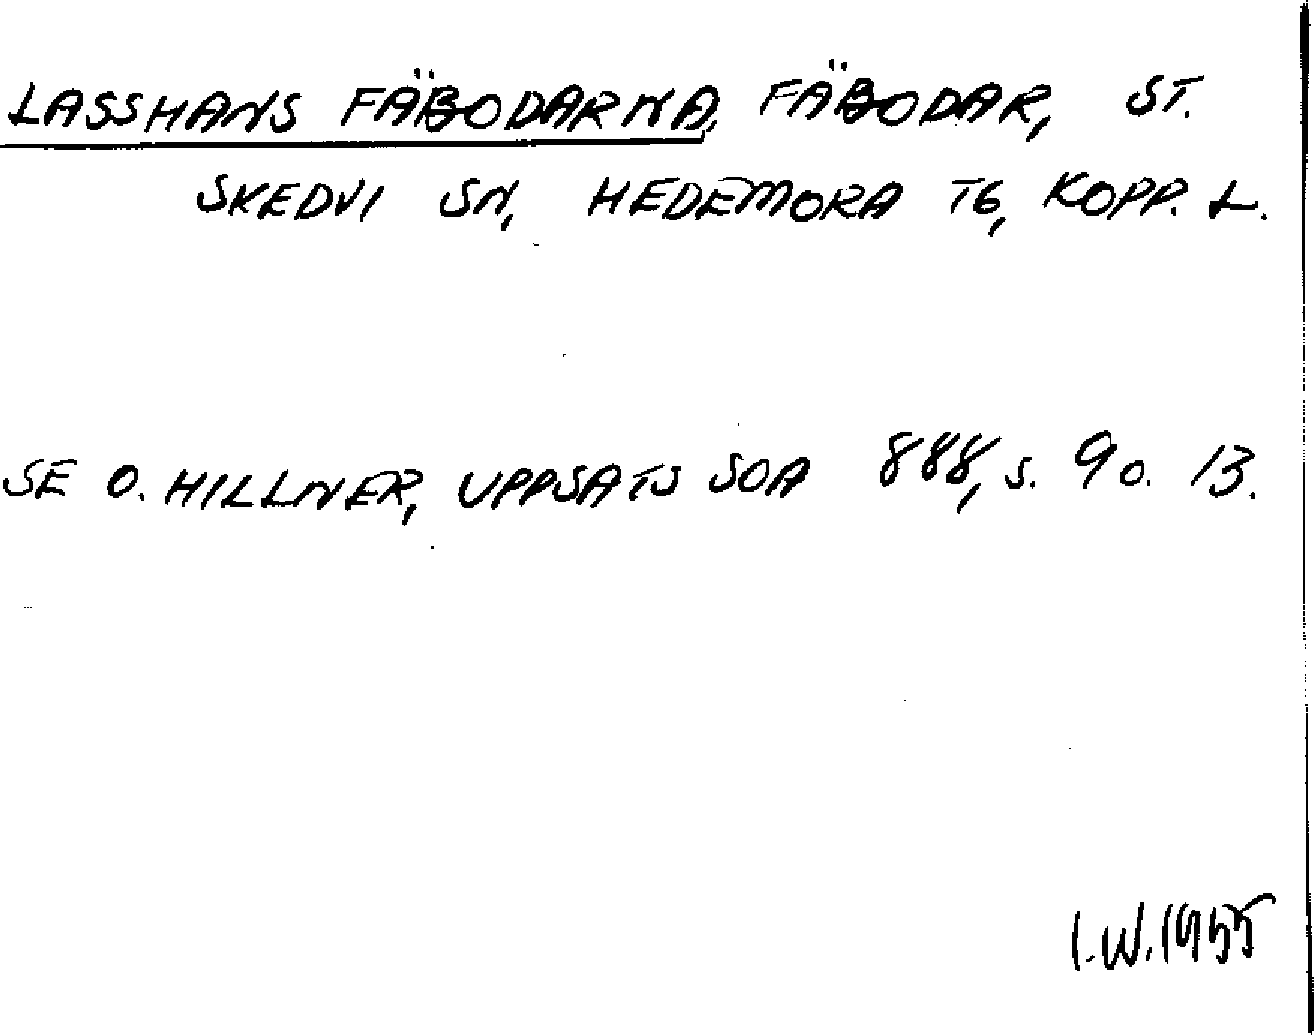 LASSHANS FÄBODARNA, FÄBODAR, ST.
SKEDVI SN, HEDEMORA TG, KOPP. L.
SE O. HILLNER, UPPSATS SOA 888, S. 9 O. 13.
I.W. 1955